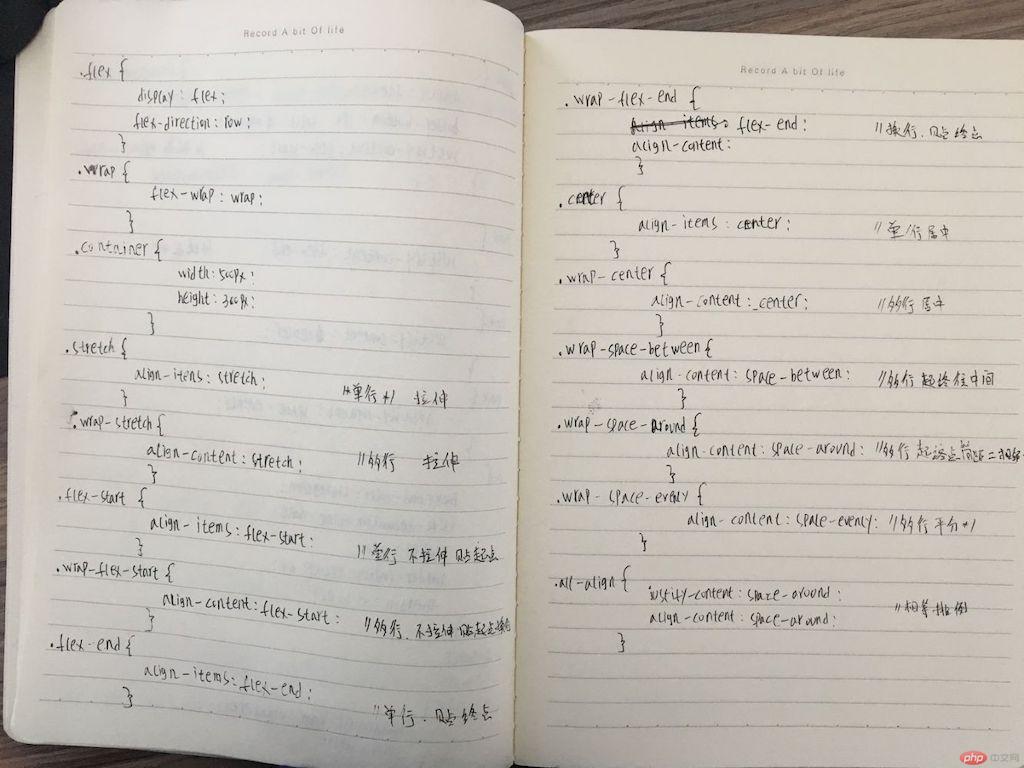 Record A bit Of life
.flex {
display: flex;
flex-direction: row;
}
.wrap {
flex-wrap: wrap;
}
.container {
width: 500px;
height: 300px;
}
.stretch {
align-items: stretch; 单行 拉伸
}
.wrap-stretch {
align-content: stretch; //多行 拉伸
}
.flex-start {
align-items: flex-start; //单行 不拉伸 贴起点
}
.wrap-flex-start {
align-content: flex-start; //多行、不拉伸 贴起点
}
.flex-end {
align-items: flex-end;
//单行、贴终点
}
Record A bit Of life
.wrap-flex-end {
align-items: flex-end; //换行、贴终点
align-content:
}
.center {
align-items: center; //单行居中
}
.wrap-center {
align-content: center; //多行居中
}
.wrap-space-between {
align-content: space-between; //多行 起终 中间
}
.wrap-space-around {
align-content: space-around; //多行 起终点
}
.wrap-space-evenly {
align-content: space-evenly; //多行平分
}
.all-align {
justify-content: space-around;
align-content: space-around; //相等
}
php 中文网